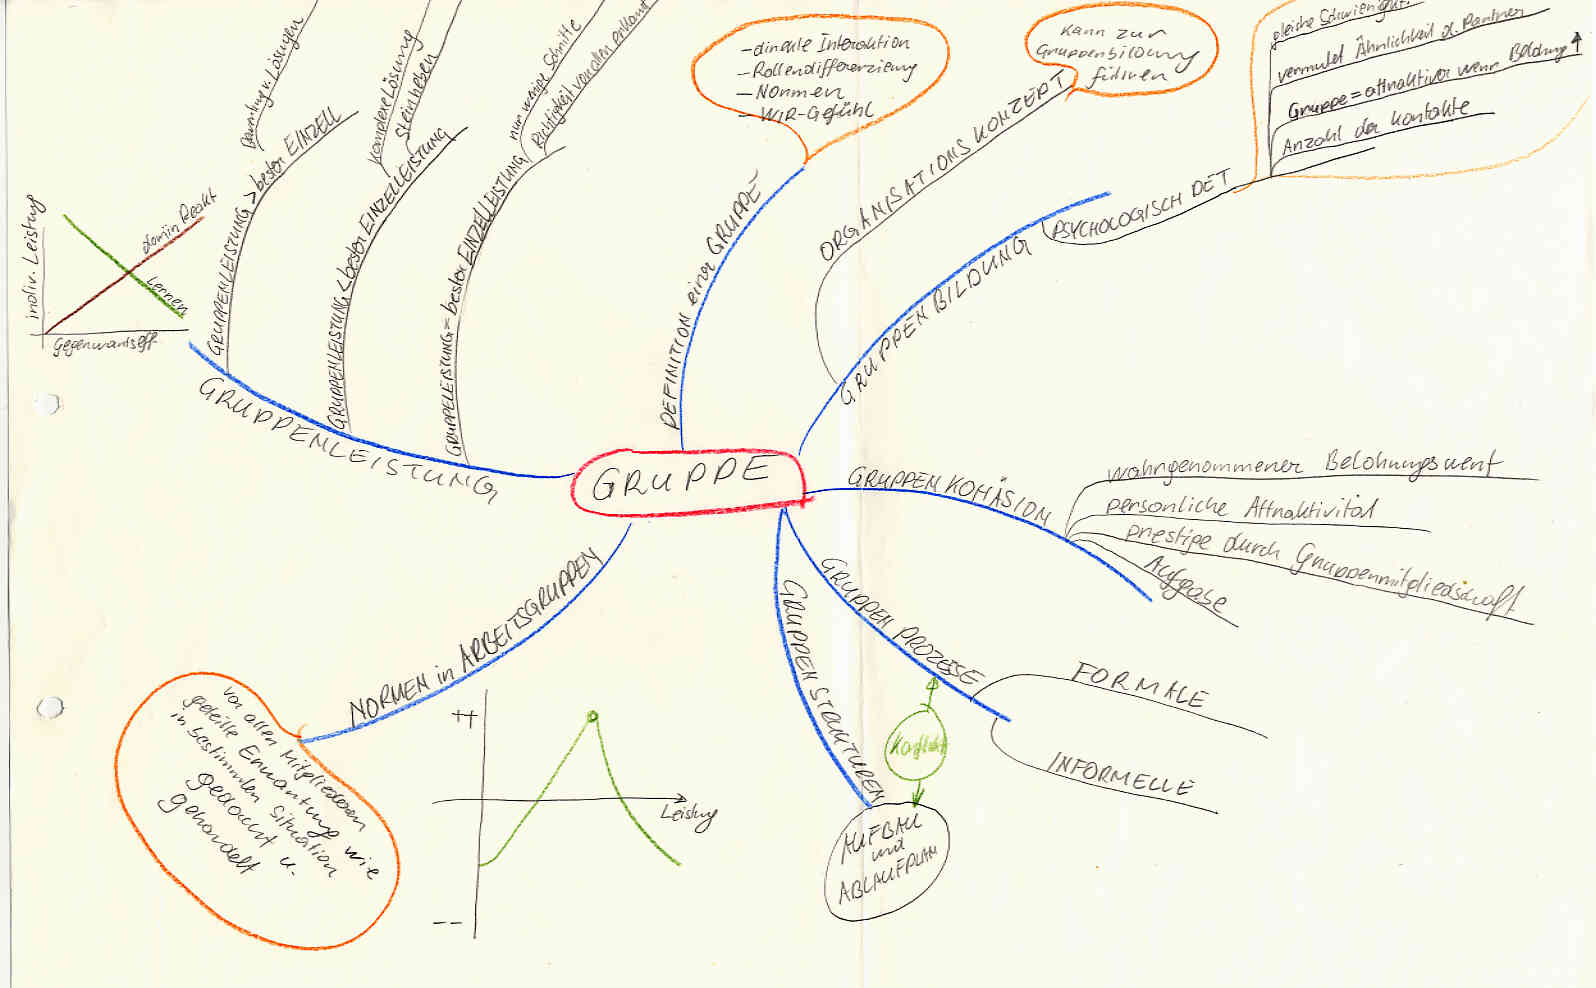 GRUPPE
DEFINITION einer GRUPPE
- direkte Interaktion
- Rollendifferenzierung
- Normen
- WIR-Gefühl
GRUPPEN BILDUNG
ORGANISATIONS KONZEPT
kann zur
Gruppenbildung
führen
PSYCHOLOGISCH DET
gleiche
vermutet Ähnlichkeit d. Partner
Gruppe = attraktiver wenn Belohnung ↑
Anzahl der Kontakte
GRUPPEN KOHÄSION
wahrgenommener Belohnungswert
persönliche Attraktivität
prestige durch Gruppenmitgliedschaft
Aufgabe
GRUPPEN PROZESSE
FORMALE
INFORMELLE
Konflikt
GRUPPEN STRUKTUREN
AUFBAU
und
ABLAUFPLAN
NORMEN in ARBEITSGRUPPEN
von allen Mitgliedern
geteilte Erwartung wie
in bestimmten Situation
gedacht u.
gehandelt
++
--
Leistung
GRUPPENLEISTUNG
GRUPPENLEISTUNG > bester EINZELL
v. Lösungen
GRUPPENLEISTUNG < bester EINZELLEISTUNG
komplexe Lösung
Steinheben
GRUPPELEISTUNG = bester EINZELLEISTUNG
nur wenige Schritte
Richtigkeit von allen erkannt
indiv. Leistung
domin Reakt
Lernen
Gegenwartseff.